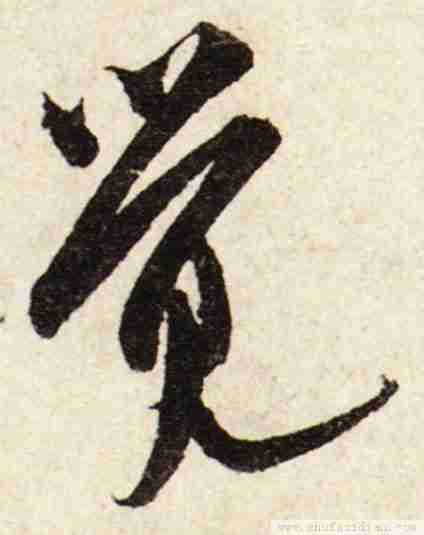 覚
www.shufazidian.com